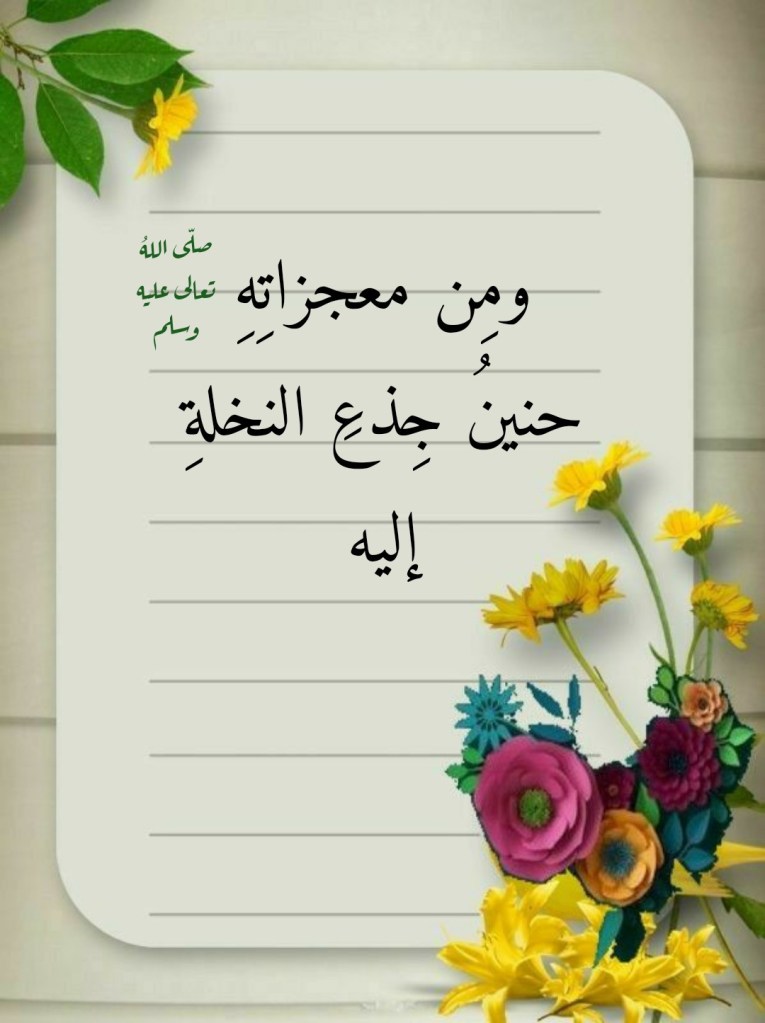 ومِن معجزاتِهِ
صلّى اللهُ
تعالى عليه
وسلم
حنينُ جِذعِ النخلةِ
إليه